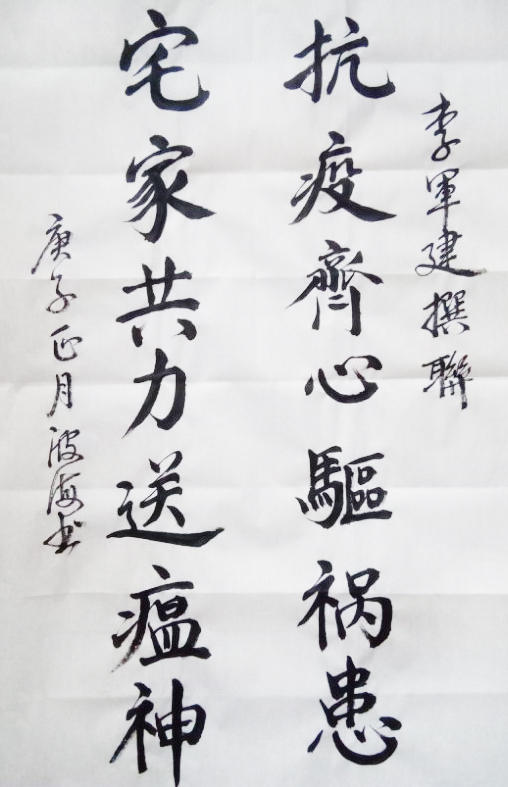 李軍建撰聯
抗疫齊心驅祸患
宅家共力送瘟神
庚子正月波海书